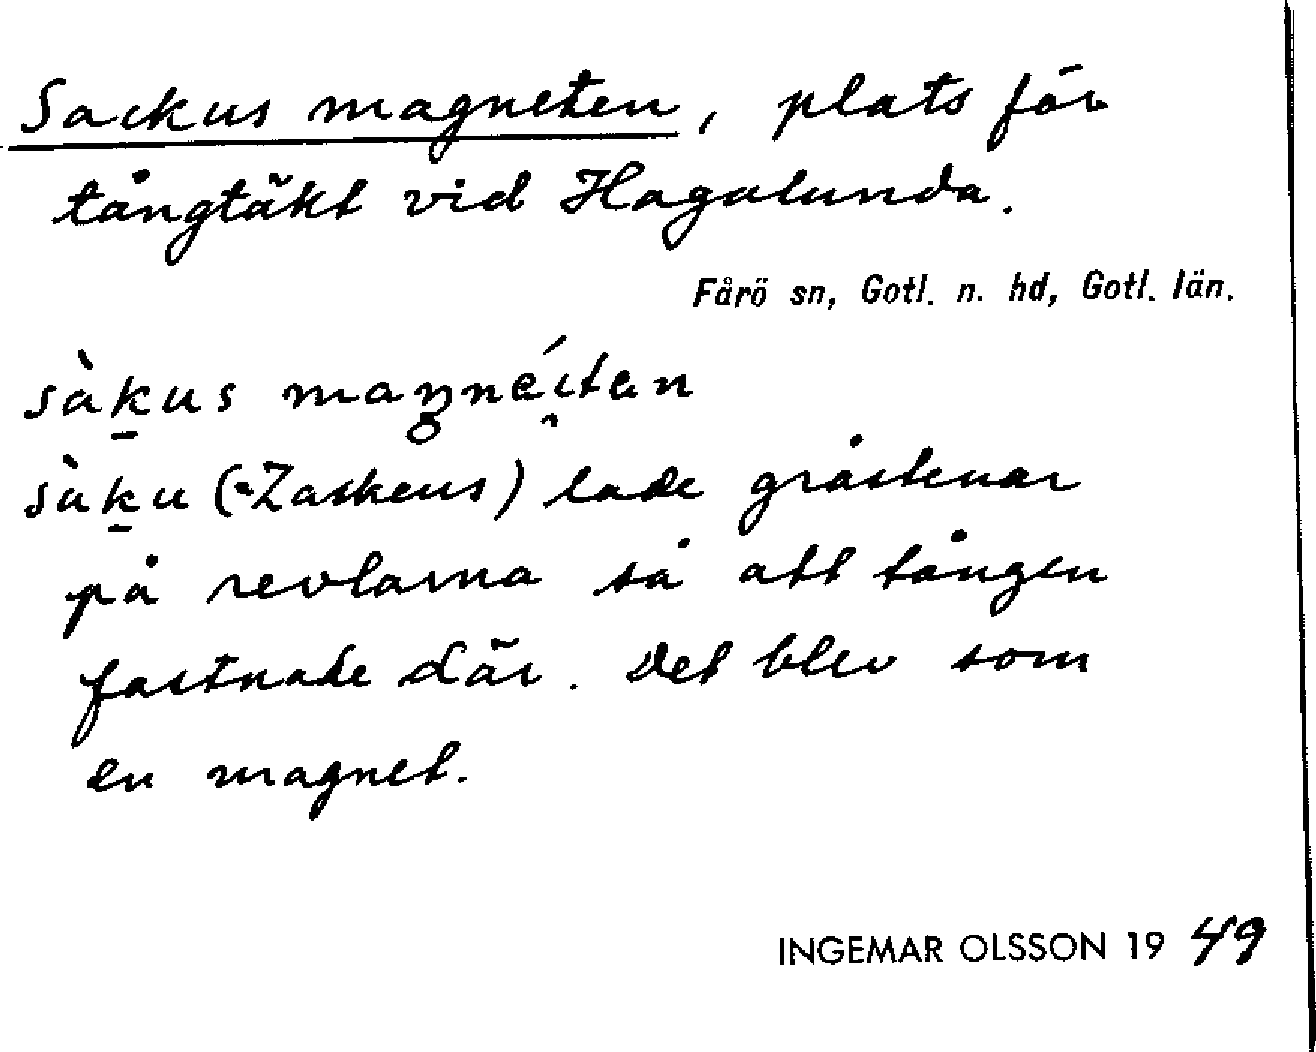 Sackus magneten, plats för
tångtäkt vid Hagalunda.
Fårö sn, Gotl. n. hd, Gotl. län.
sàk̲us maŋné́itən
sàk̲u (=Zackeus) lade gråstenar
på revlarna så att tången
fastnade där. Det blev som
en magnet.
INGEMAR OLSSON 19 49